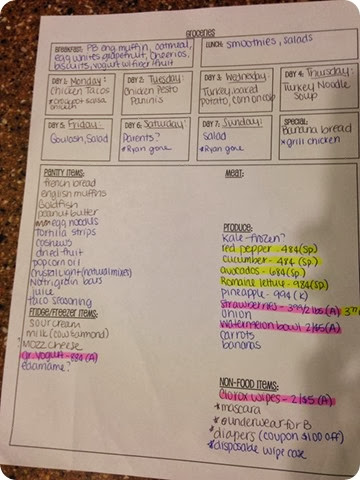 GROCERIES
BREAKFAST: PB eng muffin, oatmeal,
egg whites grapefruit, Cheerios,
biscuits, yogurt w/ fruit
LUNCH: smoothies, salads
DAY 1: Monday:
Chicken Tacos
chicken
DAY 2: Tuesday:
Chicken Pesto
Paninis
DAY 3: Wednesday:
Turkey, baked
potato, corn on cob
DAY 4: Thursday:
Turkey Noodle
Soup
DAY 5: Friday:
Goulash, Salad
DAY 6: Saturday:
Parents?
*Ryan gone
DAY 7: Sunday:
Salad
*Ryan gone
SPECIAL:
Banana bread
*grill chicken
PANTRY ITEMS:
french bread
english muffins
Goldfish
peanut butter
egg noodles
tortilla strips
cashews
dried fruit
popcorn oil
Crystal Light (natural mixes)
Nutrigrain bars
juice
taco seasoning
FRIDGE/FREEZER ITEMS:
sour cream
milk (cow & almond)
mozz cheese
Gr. yogurt - 88¢ (A)
edamame?
MEAT:
PRODUCE:
Kale - frozen?
red pepper - 48¢ (sp)
cucumber - 48¢ (sp)
avocados - 68¢ (sp)
Romaine lettuce - 98¢ (sp)
pineapple - 99¢ (K)
strawberries - 2 lbs (A)
onion
watermelon bowl 2/$5 (A)
carrots
bananas
NON-FOOD ITEMS:
Clorox wipes - 2/$5 (A)
*mascara
*underwear for B
*diapers (coupon $1.00 off)
*disposable wipe case